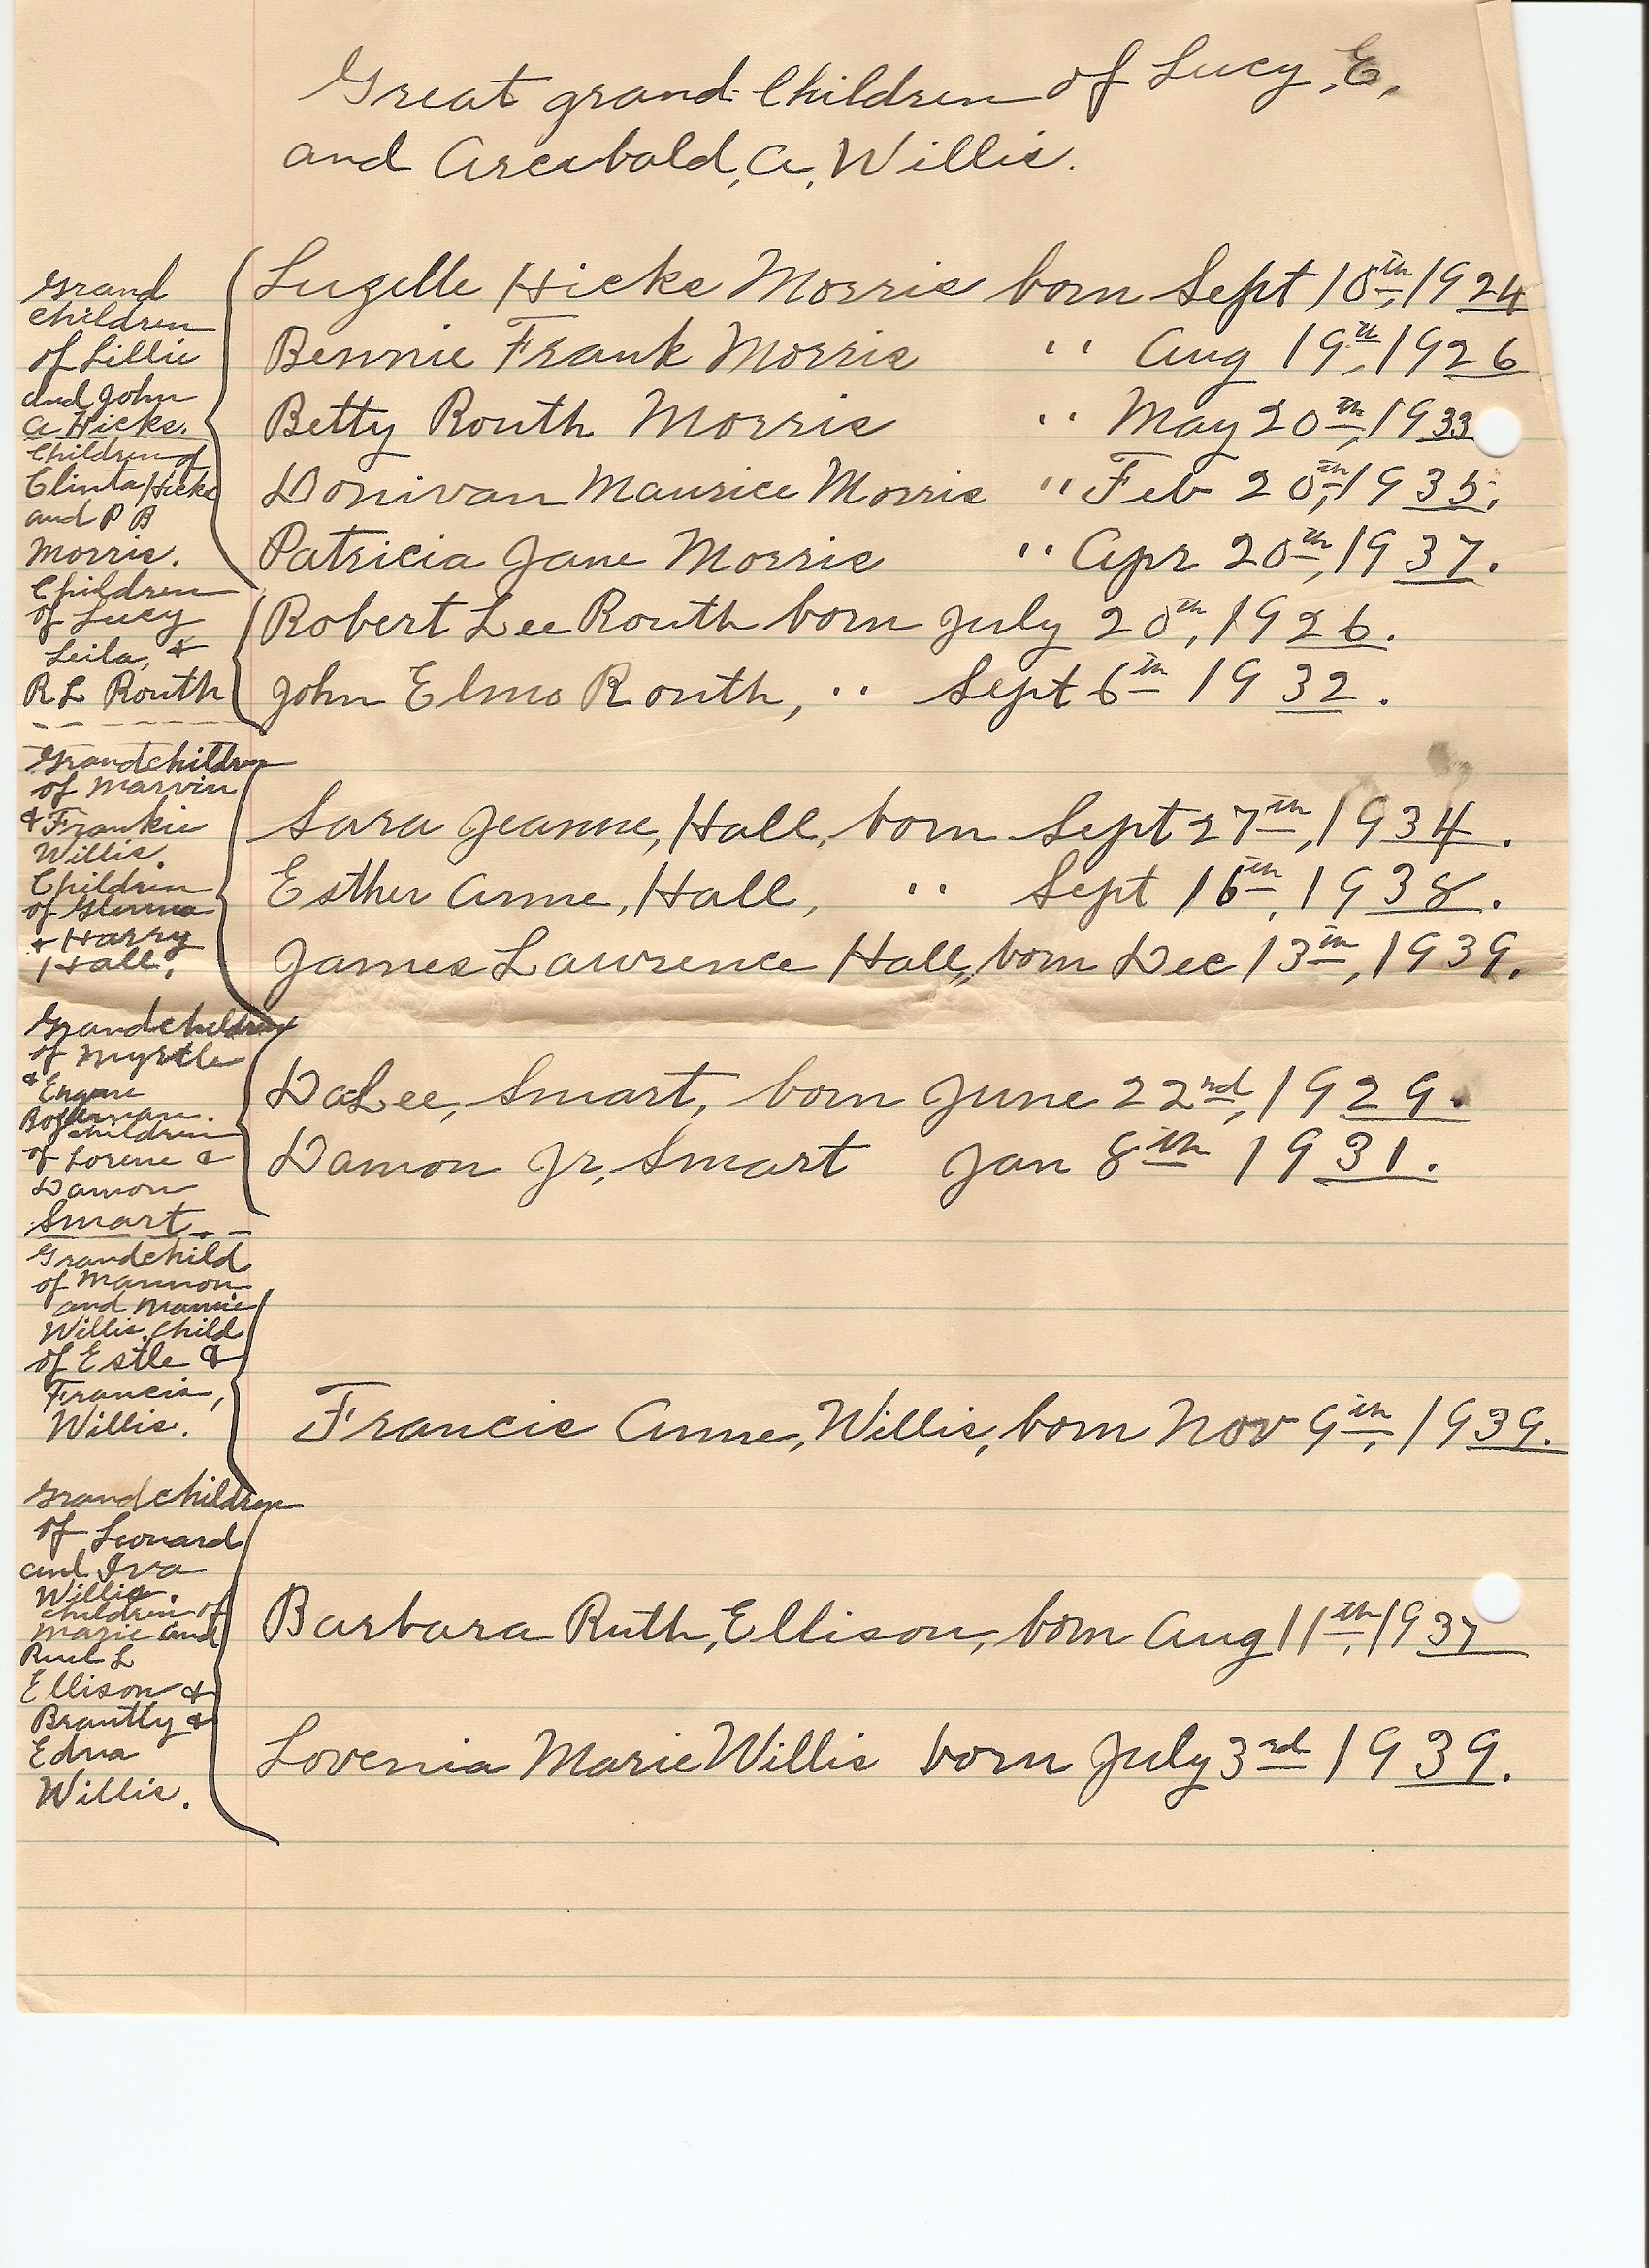 Great grand Children of Lucy, E,
and Arcabald, A, Willis.
Grand
Children
of Lillie
and John
A Hicks.
Children of
Clinta Hicks
and P B
Morris.
Luzelle Hicks Morris born Sept 10th, 1924
Bennie Frank Morris " Aug 19th, 1926
Betty Routh Morris " May 20th, 1933
Donivan Maurice Morris " Feb 20th, 1935.
Patricia Jane Morris " Apr 20th, 1937.
Children
of Lucy
Leila, &
R L Routh
Robert Lee Routh born July 20th, 1926.
John Elmo Routh, " Sept 6th 1932.
Grandchildren
of Marvin
& Frankie
Willis.
Children
of Glenna
& Harry
Hall.
Sara Jeanne, Hall, born Sept 27th, 1934.
Esther Anne, Hall, " Sept 16th, 1938.
James Lawrence Hall, born Dec 13th, 1939.
Grandchildren
of Myrtle
&
children
of Lorene &
Damon
Smart
DaLee, Smart, born June 22nd, 1929.
Damon Jr, Smart Jan 8th 1931.
Grandchild
of Mannon
and Mamie
Willis. Child
of Estle &
Francis,
Willis.
Francis Anne, Willis, born Nov 9th, 1939.
Grandchildren
of Leonard
and Iva
Willis.
children of
Marie and
L
Ellison &
Brantly &
Edna
Willis.
Barbara Ruth, Ellison, born Aug 11th, 1937
Lovenia Marie Willis born July 3rd 1939.